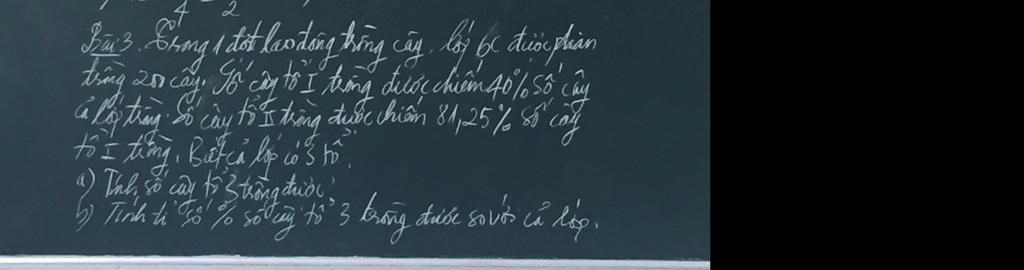 4 2
Bài 3. Trong 1 đợt lao động trồng cây, lớp 6C được phân
trồng 200 cây. Số cây tổ I trồng được chiếm 40% số cây
cả lớp trồng. Số cây tổ II trồng được chiếm 81,25% số cây
tổ I trồng. Biết cả lớp có 3 tổ.
a) Tính số cây tổ 3 trồng được?
b) Tính tỉ số % số cây tổ 3 trồng được so với cả lớp.